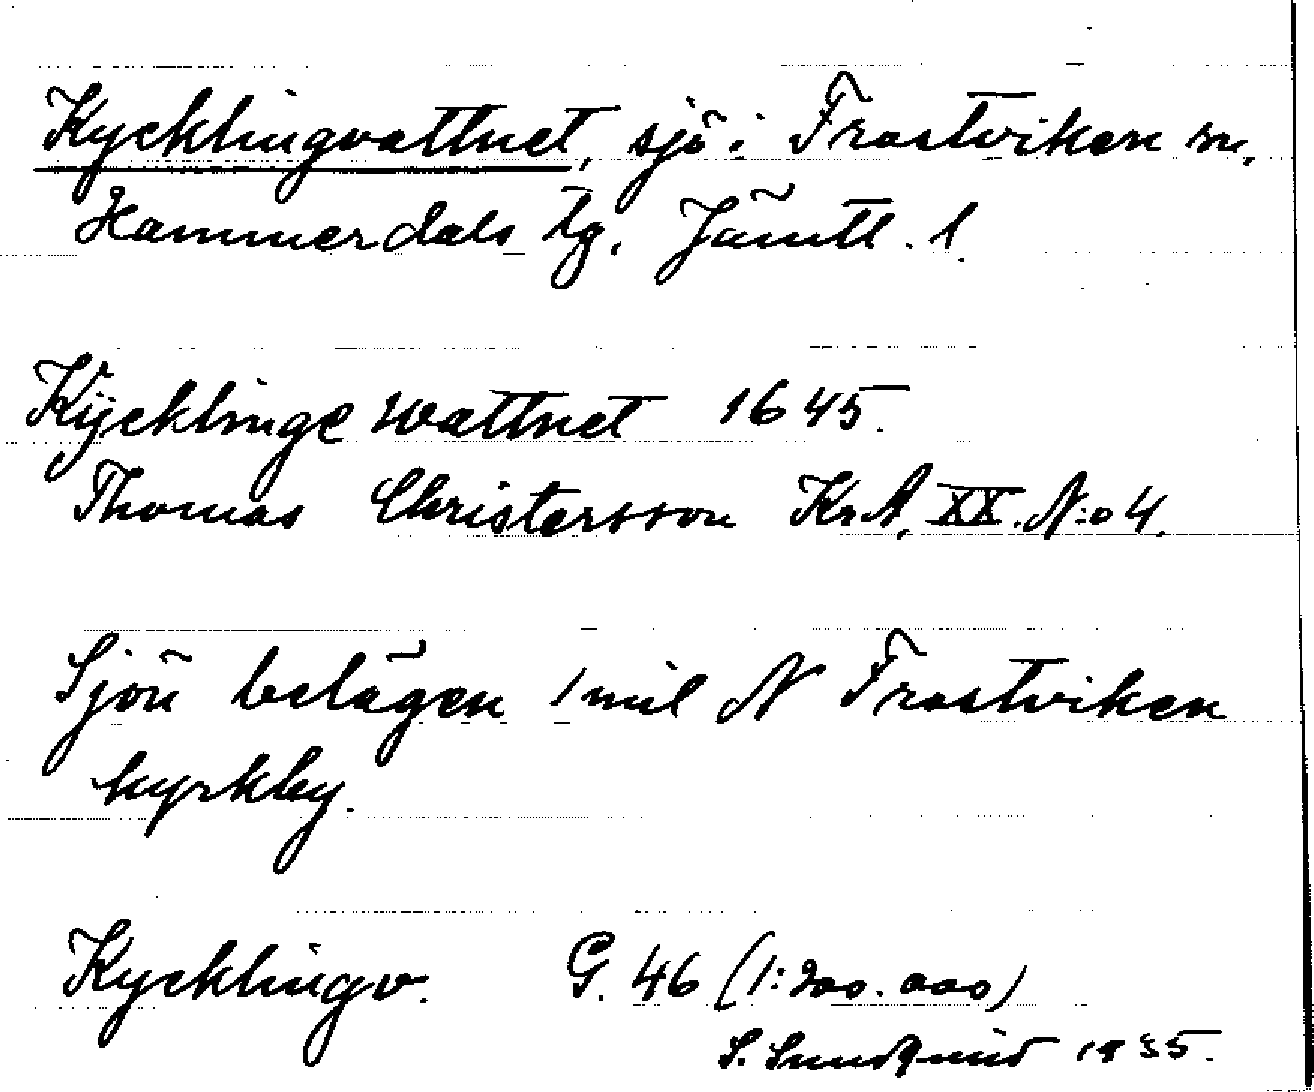 Kycklingvattnet, sjö i Frostviken sn,
Hammerdals tg. Jämtl. l.
Kÿcklinge Wattnet 1645.
Thomas Christersson KrA, XX. N:o 4.
Sjön belägen 1 mil N Frostviken
kyrkby.
Kycklingv. G. 46 (1:200.000)
S. Sundqvist 1935.